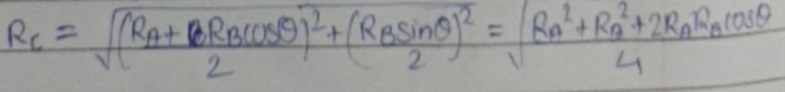 R_C = √((R_A + R_B cosθ)/2)² + ((R_B sinθ)/2)² = √((R_A² + R_B² + 2R_A R_B cosθ)/4)